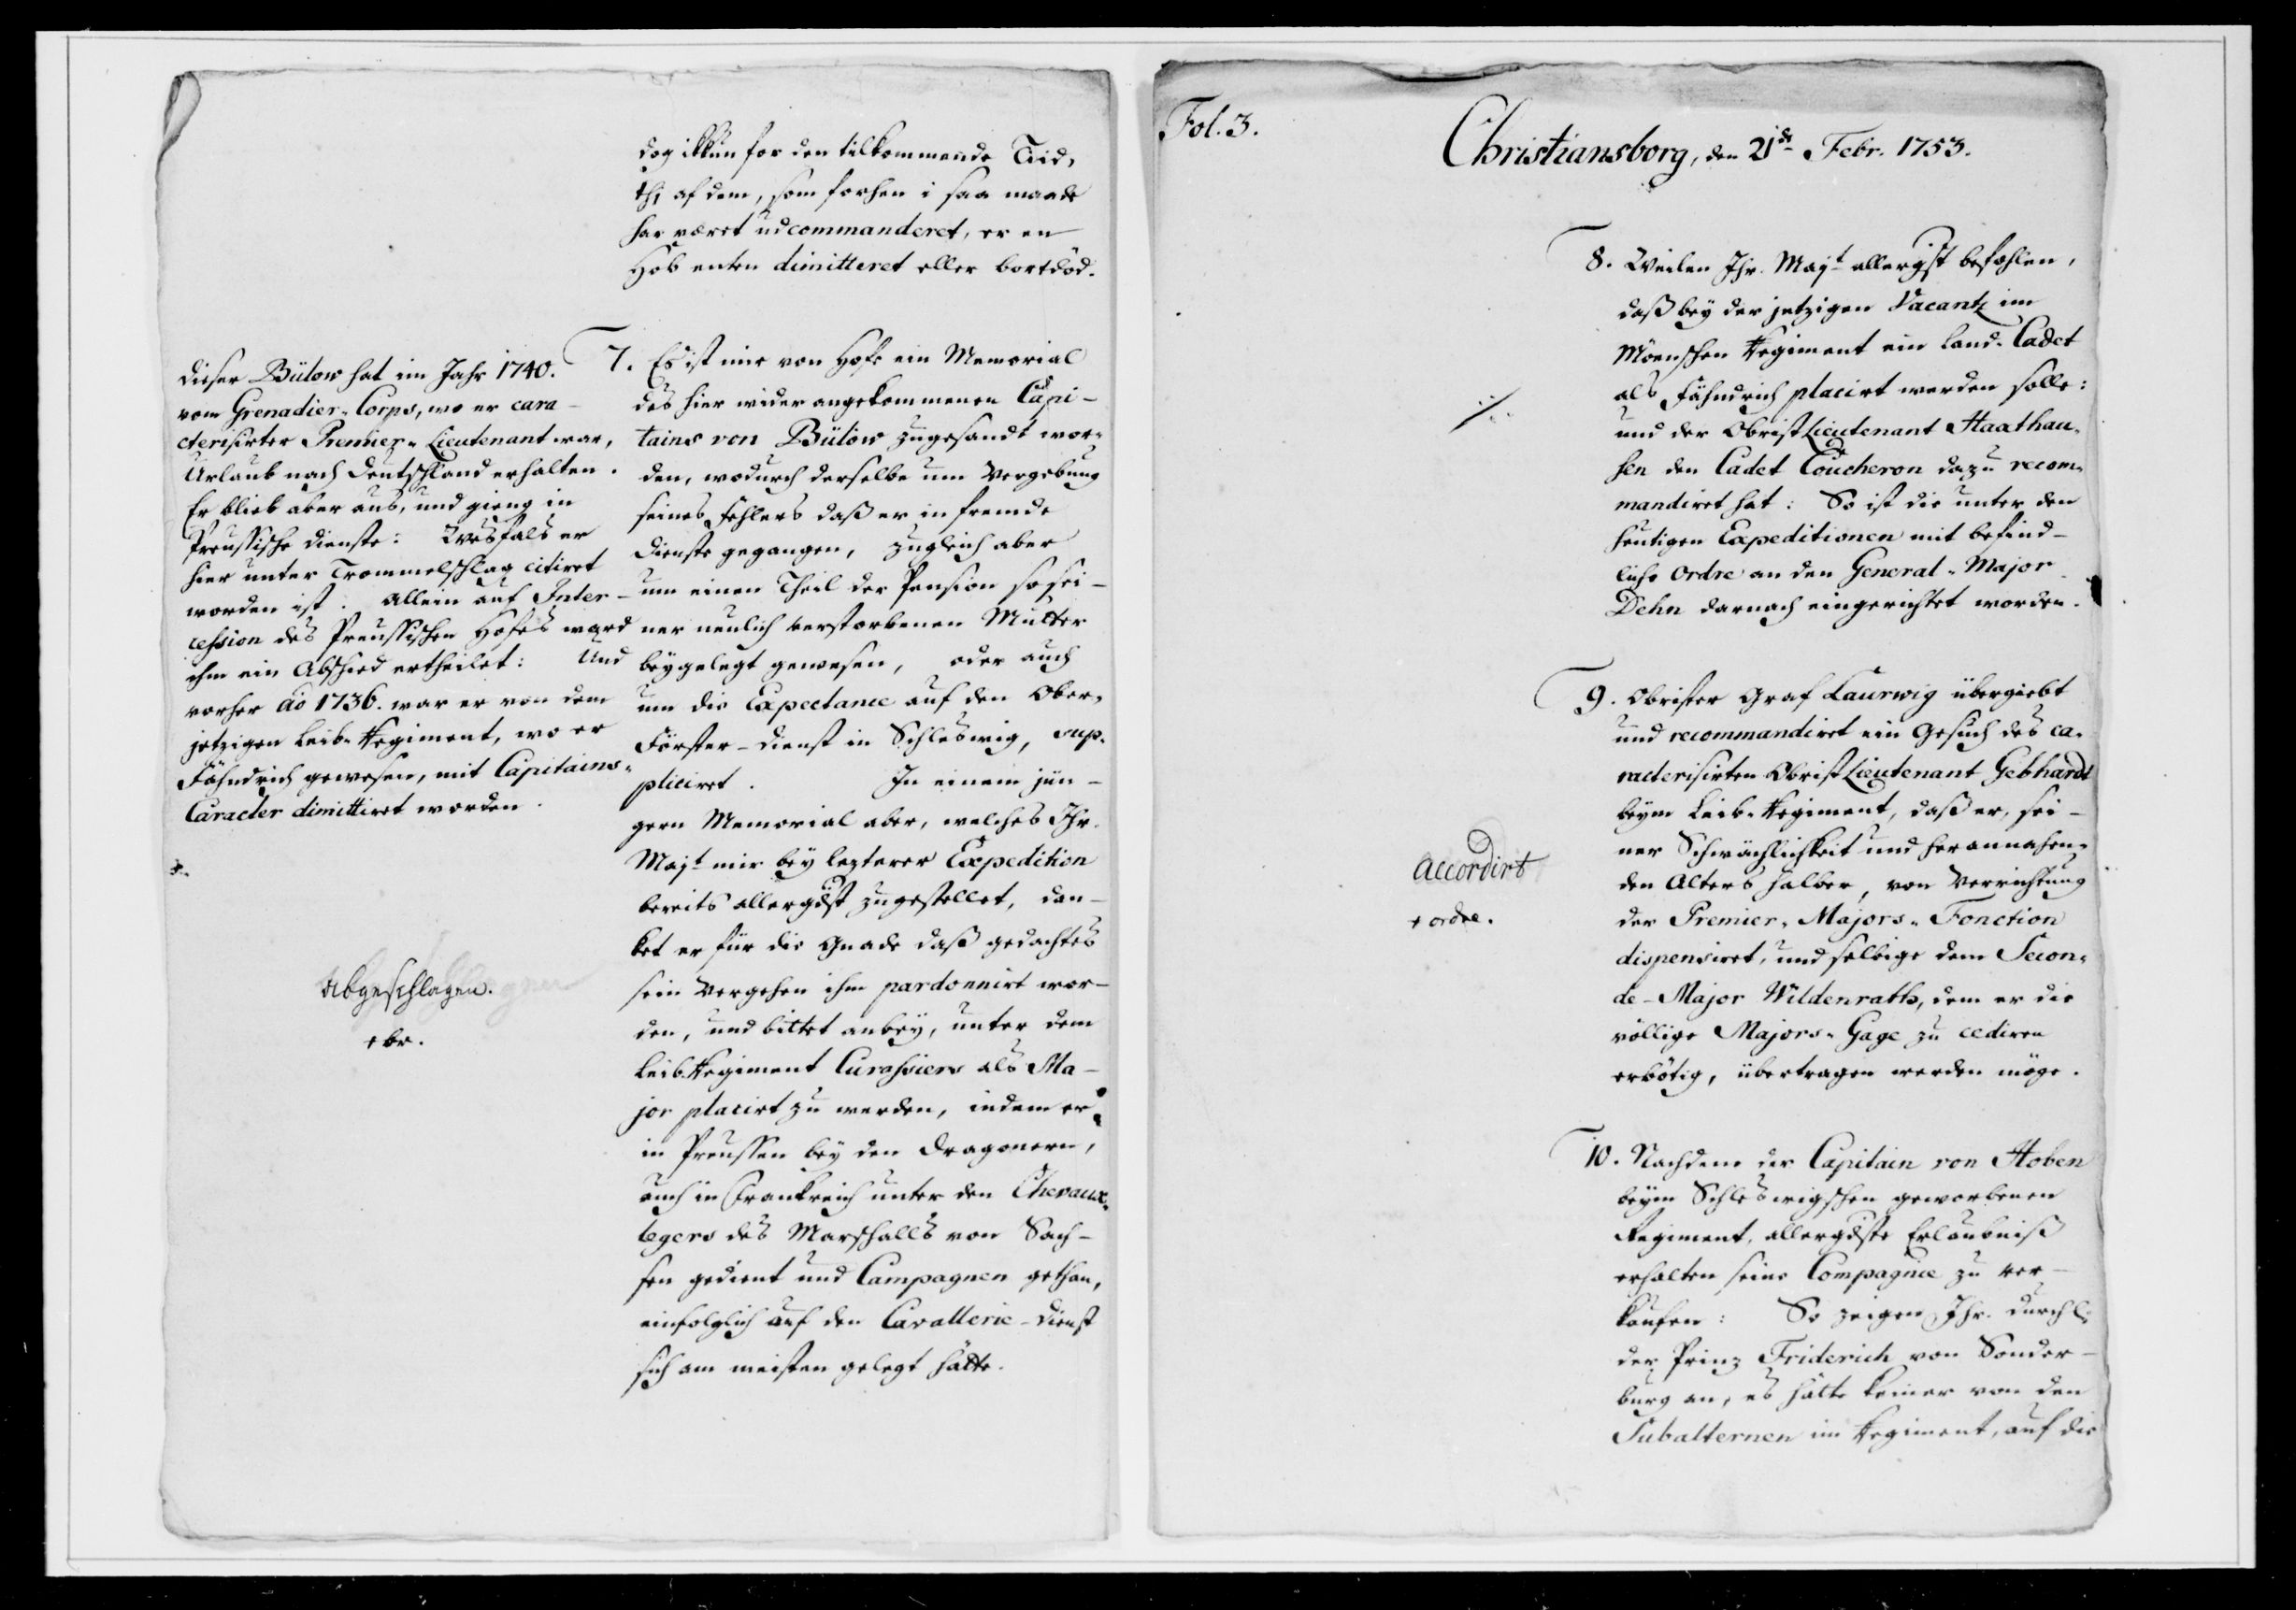 dog ikkun for den tilkommende Tiid,
thi af dem, som forhen i saa maade
har været udcommanderet, er en
Hob enten dimitteret eller bortdöd.
7. Es ist mir von Hofe ein Memorial
des hier wider angekommenen Capi-
tains von Bülow zugesandt wor-
den, wodurch derselbe um Vergebung
seines Fehlers daß er in fremde
Dienste gegangen, zugleich aber
um einen Theil der Pension so sei-
ner neulich verstorbenen Mutter
beygelegt gewesen, oder auch
um die Expectance auf den Ober-
Förster-Dienst in Schleswig, sup-
pliciret. In einem jün-
gern Memorial aber, welches Ihr.
Majt mir bey lezterer Expedition
bereits allergdst zugestellet, dan-
ket er für die Gnade daß gedachtes
sein Vergehen ihm pardonnirt wor-
den, und bittet anbey, unter dem
Leib-Regiment Curassiers als Ma-
jor placirt zu werden, indem er
in Preussen bey den Dragonern,
auch in Franckreich unter den Chevaux-
legers des Marschalls von Sach-
sen gedient und Campagnen gethan,
einfolglich auf den Cavallerie-Dienst
sich am meisten gelegt hätte.
Dieser Bülow hat im Jahr 1740.
vom Grenadier-Corps, wo er cara-
cterisirter Premier-Lieutenant war,
Urlaub nach Deutschland erhalten.
Er blieb aber aus, und gieng in
Preussische Dienste: Wesfals er
hier unter Trommelschlag citiret
worden ist. Allein auf Inter-
cession des Preussischen Hofes ward
ihm ein Abschied ertheilet: Und
vorher Ao 1736. war er von dem
jetzigen Leib-Regiment, wo er
Fähndrich gewesen, mit Capitains-
Caracter dimittiret worden.
Abgeschlagen.
+ br.
Fol. 3.
Christiansborg, den 21de Febr. 1753.
8. Weilen Ihr. Majt allergst befohlen,
daß bey der jetzigen Vacantz im
Möenschen Regiment ein Land-Cadet
als Fähndrich placirt werden solle:
und der ObristLieutenant Haxthau-
sen den Cadet Coucheron dazu recom-
mandiret hat: So ist die unter den
heutigen Expeditionen mit befind-
liche Ordre an den General-Major
Dehn darnach eingerichtet worden.
·/.
9. Obrister Graf Laurwig übergiebt
und recommandiret ein Gesuch des ca-
racterisirten ObristLieutenant Gebhardt
beym Leib-Regiment, daß er, sei-
ner Schwächlichkeit und herannahen-
den Alters halber, von Verrichtung
der Premier-Majors-Fonction
dispensiret, und selbige dem Secon-
de-Major Wildenrath, dem er die
völlige Majors-Gage zu cediren
erbötig, übertragen werden möge.
Accordirt
+ ordre.
10. Nachdem der Capitain von Hoben
beym Schleswigschen geworbenen
Regiment, allergdste Erlaubniß
erhalten seine Compagnie zu ver-
kaufen: So zeigen Ihr. Durchl.
der Prinz Friderich von Sonder-
burg an, es hätte keiner von den
Subalternen im Regiment, auf die